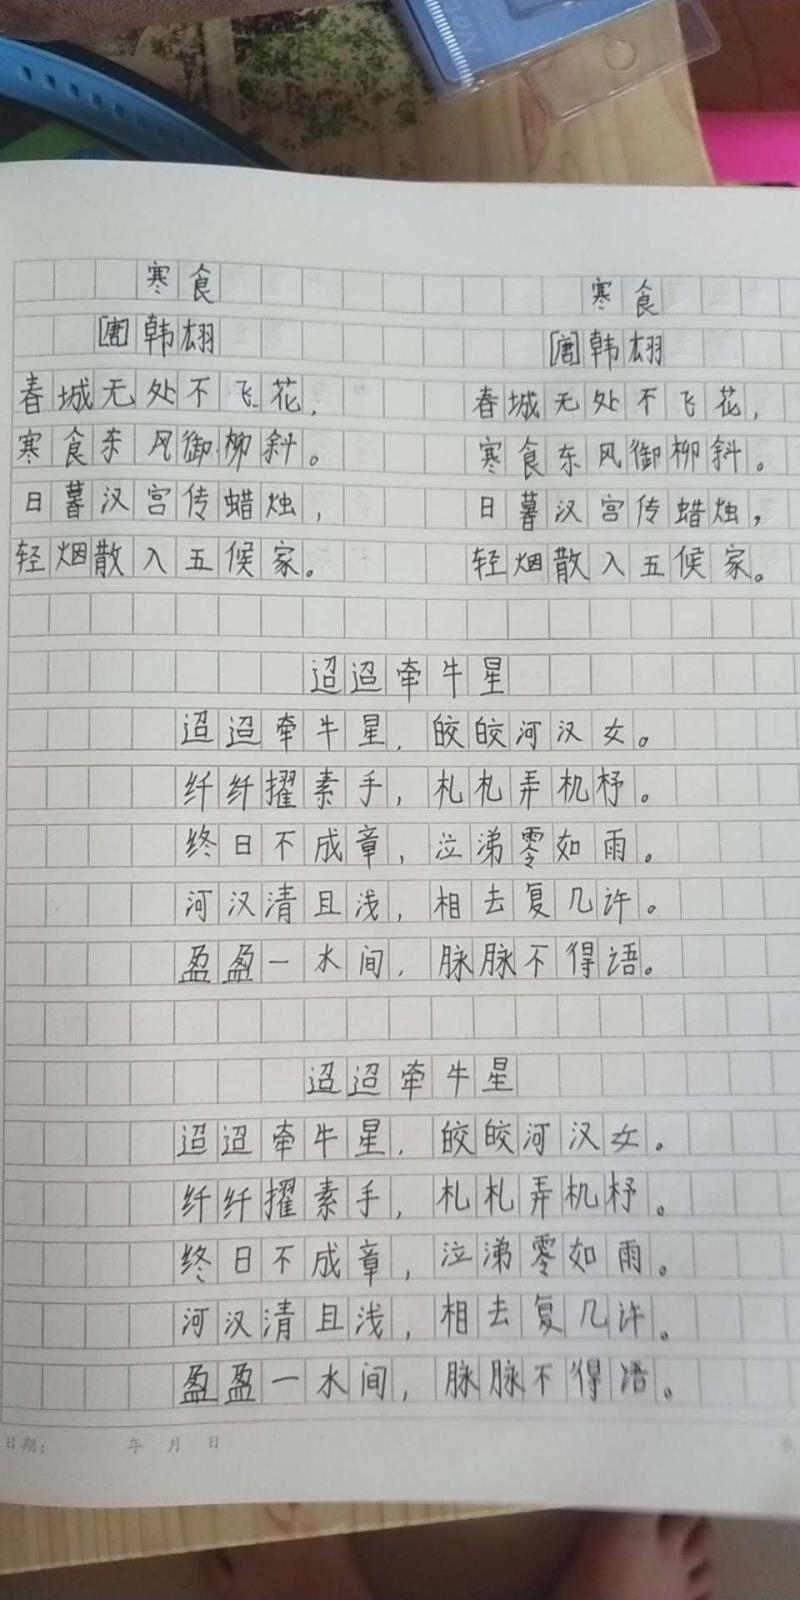 寒食
[唐]韩翃
春城无处不飞花,
寒食东风御柳斜。
日暮汉宫传蜡烛,
轻烟散入五候家。
寒食
[唐]韩翃
春城无处不飞花,
寒食东风御柳斜。
日暮汉宫传蜡烛,
轻烟散入五候家。
迢迢牵牛星
迢迢牵牛星,皎皎河汉女。
纤纤擢素手,札札弄机杼。
终日不成章,泣涕零如雨。
河汉清且浅,相去复几许。
盈盈一水间,脉脉不得语。
迢迢牵牛星
迢迢牵牛星,皎皎河汉女。
纤纤擢素手,札札弄机杼。
终日不成章,泣涕零如雨。
河汉清且浅,相去复几许。
盈盈一水间,脉脉不得语。
日期: 年 月 日